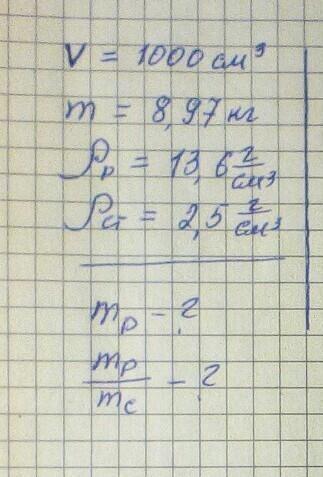 V = 1000 см³
m = 8,97 кг
ρр = 13,6 г/см³
ρст = 2,5 г/см³
mр - ?
mр/mс - ?